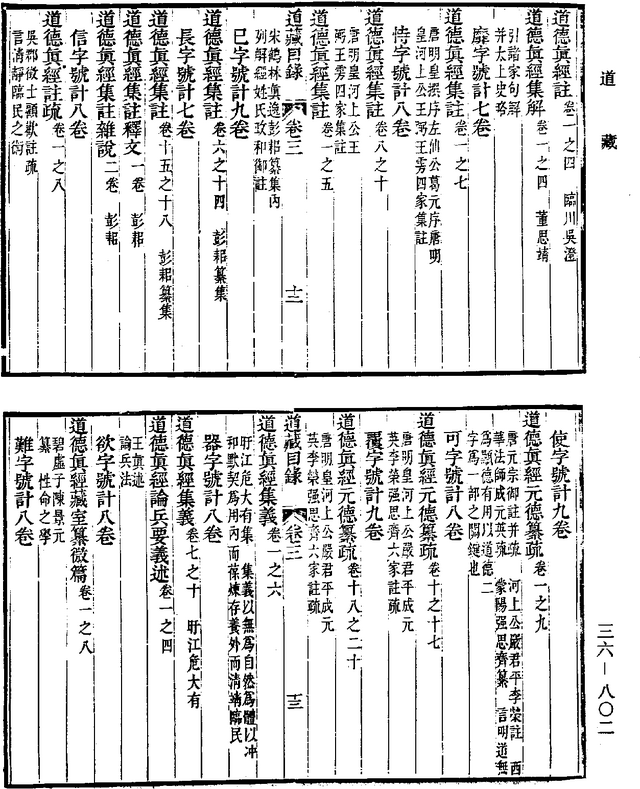 道藏
道德眞經註 卷一之四 臨川吳澄
道德眞經集解 卷一之四 董思靖
引諸家句解
并太上史略
靡字號計七卷
道德眞經集註 卷一之七
唐明皇撰序左仙公葛元序唐明
皇河上公王弼王雱四家集註
恃字號計八卷
道德眞經集註 卷八之十
唐明皇河上公王
弼王雱四家集註
道德眞經集註 卷一之五
道藏目錄 卷三 十二
宋鶴林眞逸彭耜纂集內
列解經姓氏政和御註
巳字號計九卷
道德眞經集註 卷六之十四 彭耜纂集
長字號計七卷
道德眞經集註 卷十五之十八 彭耜纂集
道德眞經集註釋文 一卷 彭耜
道德眞經集註雜說 二卷 彭耜
信字號計八卷
道德眞經註疏 卷一之八
吳郡徵士顧歡註疏
言清靜臨民之術
使字號計九卷
道德眞經元德纂疏 卷一之九
唐元宗御註并疏 河上公嚴君平李榮註 西
華法師成元英疏 蒙陽强思齊纂 言明道無
爲顯德有用以道德二
字爲一部之關鍵也
可字號計八卷
道德眞經元德纂疏 卷十之十七
唐明皇河上公嚴君平成元
英李榮强思齊六家註疏
覆字號計九卷
道德眞經元德纂疏 卷十八之二十
唐明皇河上公嚴君平成元
英李榮强思齊六家註疏
道藏目錄 卷三 十三
道德眞經集義 卷一之六
盱江危大有集 集義以無爲自然爲體以冲
和默契爲用內而葆煉存養外而清靖臨民
器字號計八卷
道德眞經集義 卷七之十 盱江危大有
道德眞經論兵要義述 卷一之四
王眞述
論兵法
欲字號計八卷
道德眞經藏室纂微篇 卷一之八
碧虛子陳景元
纂 性命之學
難字號計八卷
三六—八〇二